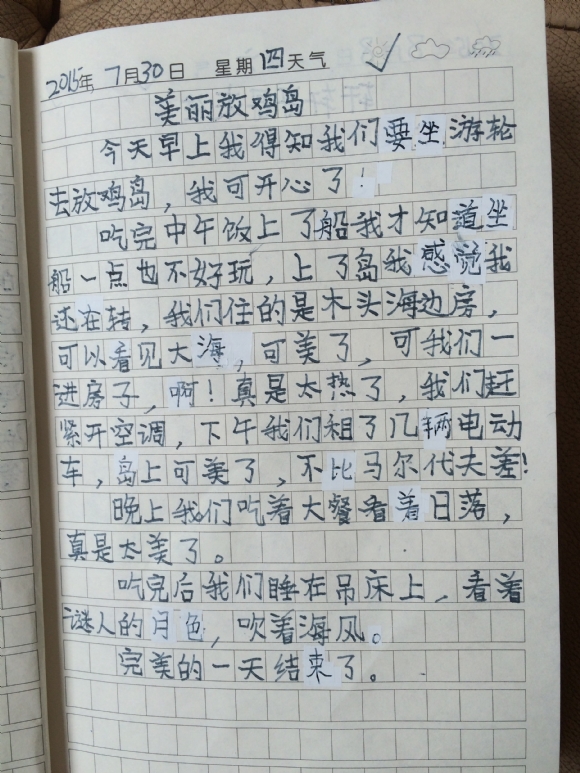 2015年 7月30日 星期四天气
美丽放鸡岛
今天早上我得知我们要坐游轮
去放鸡岛，我可开心了！
吃完中午饭上了船我才知道坐
船一点也不好玩，上了岛我感觉我
还在转，我们住的是木头海边房，
可以看见大海，可美了，可我们一
进房子，啊！真是太热了，我们赶
紧开空调，下午我们租了几辆电动
车，岛上可美了，不比马尔代夫差！
晚上我们吃着大餐看着日落，
真是太美了。
吃完后我们睡在吊床上，看着
谜人的月色，吹着海风。
完美的一天结束了。